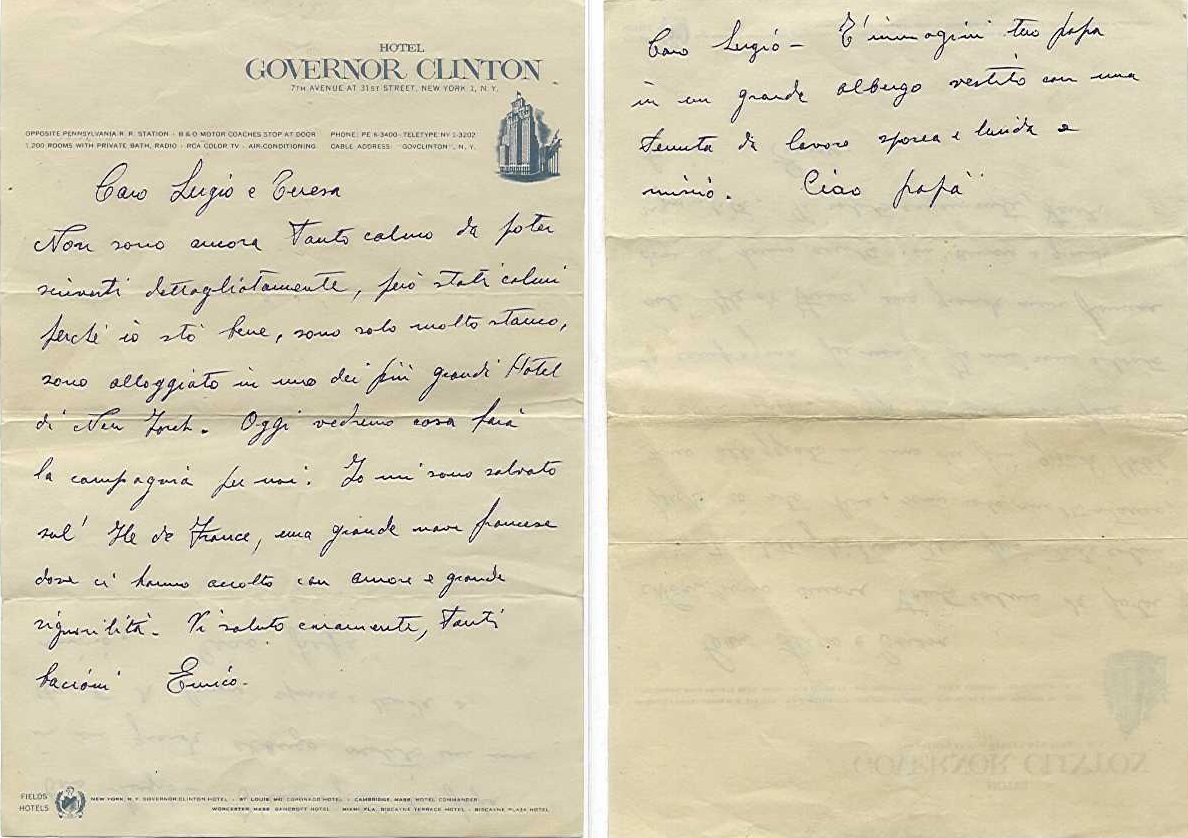 HOTEL
GOVERNOR CLINTON
7TH AVENUE AT 31ST STREET, NEW YORK 1, N. Y.
OPPOSITE PENNSYLVANIA R. R. STATION - B & O MOTOR COACHES STOP AT DOOR
1,200 ROOMS WITH PRIVATE BATH, RADIO - RCA COLOR TV - AIR-CONDITIONING
PHONE: PE 6-3400 - TELETYPE NY 1-3202
CABLE ADDRESS: "GOVCLINTON", N. Y.
Caro Sergio e Teresa
Non sono ancora tanto calmo da poter
scriverti dettagliatamente, però stati calmi
perché io stò bene, sono solo molto stanco,
sono alloggiato in uno dei più grandi Hotel
di New Jorch. Oggi vedremo cosa farà
la compagnia per noi. Io mi sono salvato
sul' Ile de France, una grande nave francese
dove ci hanno accolto con amore e grande
signorilità. Vi saluto caramente, tanti
bacioni Enrico.
FIELDS
HOTELS
NEW YORK, N. Y. GOVERNOR CLINTON HOTEL - ST. LOUIS, MO. CORONADO HOTEL - CAMBRIDGE, MASS. HOTEL COMMANDER
WORCESTER, MASS. BANCROFT HOTEL - MIAMI, FLA. BISCAYNE TERRACE HOTEL - BISCAYNE PLAZA HOTEL
Caro Sergio - T'immagini tuo papa
in un grande albergo vestito con una
tenuta da lavoro sporca e lurida e
Ciao papà